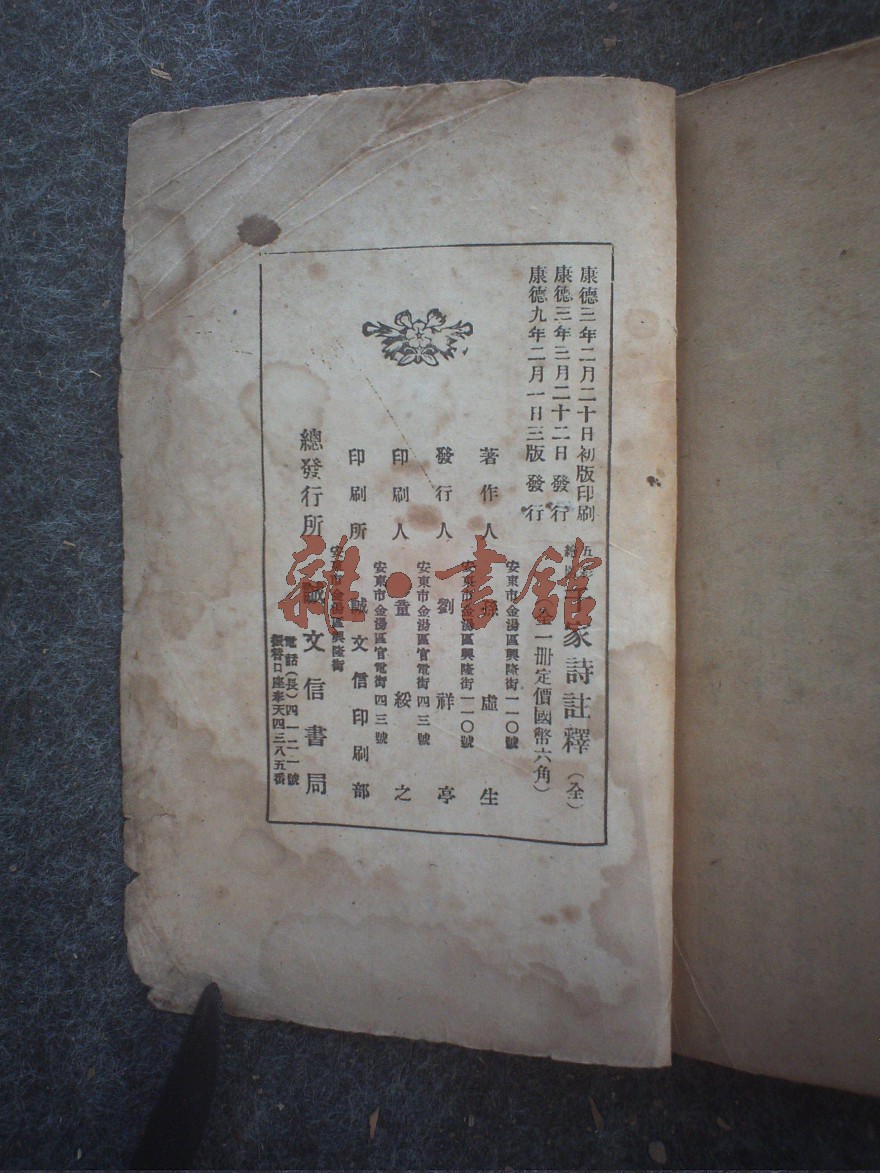 康德三年二月二十日初版印刷
康德三年三月二十二日發行
康德九年二月一日三版發行
千家詩註釋（全）
全一册定價國幣六角）
安東市金湯區興隆街一一〇號
著作人 孫虛生
安東市金湯區興隆街一一〇號
發行人 劉祥亭
安東市金湯區官電街四三號
印刷人 董綏之
安東市金湯區官電街四三號
印刷所 誠文信印刷部
安東市金湯區興隆街
總發行所 誠文信書局
電話（長）四一二一號
振替口座奉天四三八五番
雜·書館